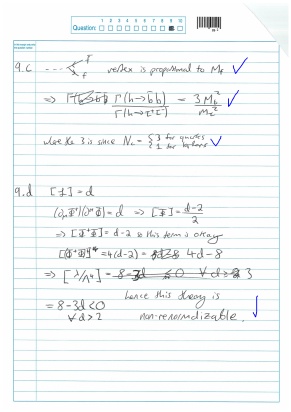 Question: 1 2 3 4 5 6 7 8 9 10
9.c ---- < f̄ f vertex is proportional to M_f ✓
⇒ Γ(h→b b̄) / Γ(h→τ⁺τ⁻) = 3 M_b² / M_τ² ✓
where the 3 is since N_c = { 3 for quarks ✓
1 for leptons
9.d [ℒ] = d
(∂_μ Φ⁺)(∂^μ Φ) = d ⇒ [Φ] = d-2 / 2
⇒ [Φ⁺Φ] = d-2 so this term is okay
[Φ⁺Φ]⁴ = 4(d-2) = 4d-8
⇒ [λ/Λⁿ] =
= 8-3d < 0 hence this theory is
∀ d > 2 non-renormalizable. ✓